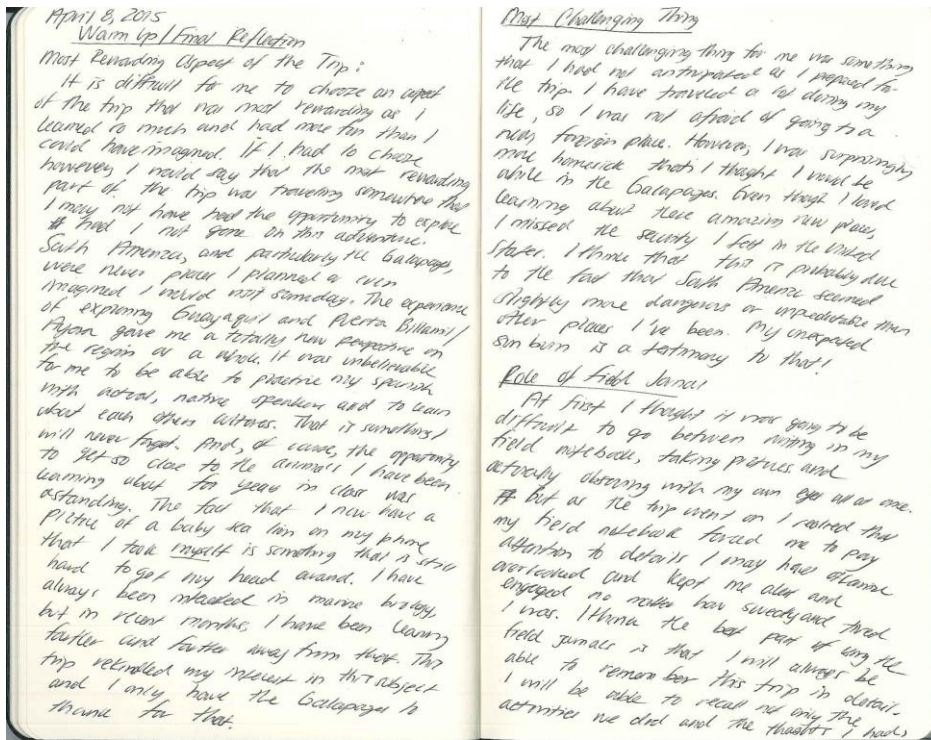 April 8, 2015
Warm Up/Final Reflection
Most Rewarding Aspect of the Trip:
It is difficult for me to choose an aspect
of the trip that was most rewarding as I
learned so much and had more fun than I
could have imagined. If I had to choose
however, I would say that the most rewarding
part of the trip was traveling somewhere that
I may not have had the opportunity to explore
had I not gone on this adventure.
South America, and particularly the Galapagos,
were never places I planned or even
imagined I would visit someday. The experience
of exploring Guayaquil and Puerto Billamil/
Ayora gave me a totally new perspective on
the region as a whole. It was unbelievable
for me to be able to practice my spanish
with actual, native speakers and to learn
about each others cultures. That is something I
will never forget. And, of course, the opportunity
to get so close to the animals I have been
learning about for years in class was
astanding. The fact that I now have a
picture of a baby sea lion on my phone
that I took myself is something that is still
hard to get my head around. I have
always been interested in marine biology,
but in recent months, I have been leaning
farther and farther away from that. This
trip rekindled my interest in this subject
and I only have the Galapagos to
thank for that.
Most Challenging Thing
The most challenging thing for me was something
that I had not anticipated as I prepared for
the trip. I have traveled a lot during my
life, so I was not afraid of going to a
new, foreign place. However, I was surprisingly
more homesick than I thought I would be
while in the Galapagos. Even though I loved
learning about these amazing new place,
I missed the security I felt in the United
States. I think that this is probably due
to the fact that South America seemed
slightly more dangerous or unpredictable than
other places I've been. My unexpected
sun burn is a testimony to that!
Role of Field Journal
At first I thought it was going to be
difficult to go between writing in my
field notebook, taking pictures and
actually observing with my own eyes all at once.
but as the trip went on I realized that
my field notebook forced me to pay
attention to details I may have otherwise
overlooked and kept me alert and
engaged no matter how sweaty and tired
I was. I think the best part of using the
field journals is that I will always be
able to remember this trip in detail.
I will be able to recall not only the
activities we did and the thoughts I had,